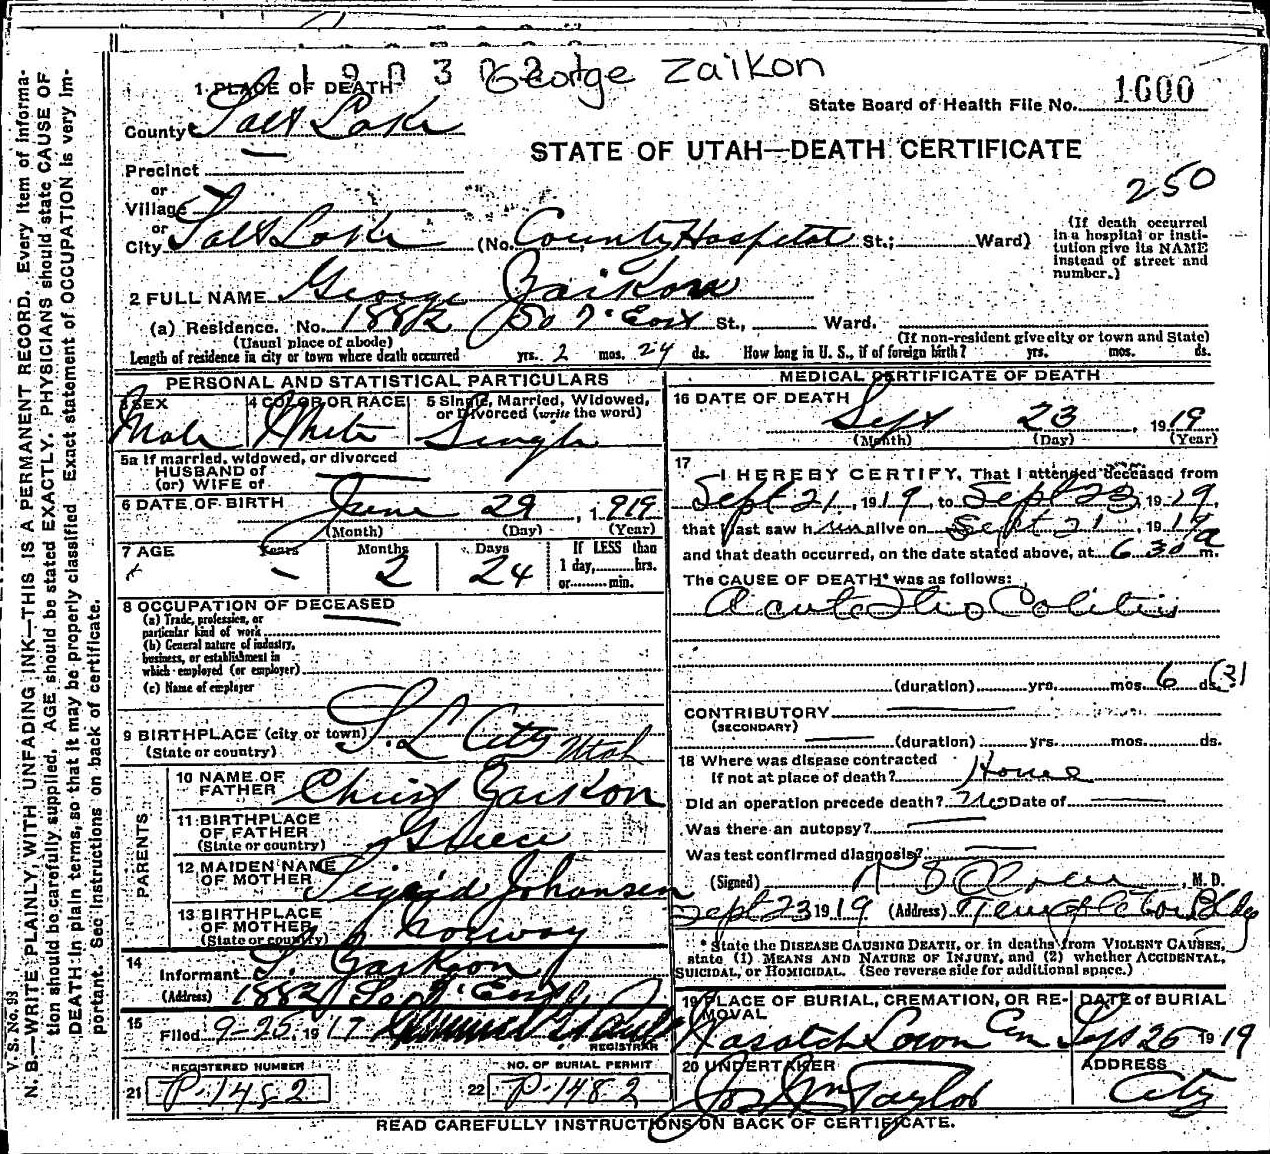 1903
George Zaikon
1 PLACE OF DEATH
State Board of Health File No. 1600
County Salt Lake
STATE OF UTAH—DEATH CERTIFICATE
Precinct
250
or
Village
or
City Salt Lake (No. County Hospital St.; Ward)
(If death occurred in a hospital or institution give its NAME instead of street and number.)
2 FULL NAME George Zaikon
(a) Residence. No. 188½ So 7" East St., Ward.
(Usual place of abode) (If non-resident give city or town and State)
Length of residence in city or town where death occurred yrs. 2 mos. 24 ds. How long in U. S., if of foreign birth? yrs. mos. ds.
PERSONAL AND STATISTICAL PARTICULARS
3 SEX Male
4 COLOR OR RACE White
5 Single, Married, Widowed, or Divorced (write the word) Single
5a If married, widowed, or divorced
HUSBAND of
(or) WIFE of
6 DATE OF BIRTH June 29, 1919
(Month) (Day) (Year)
7 AGE Years – Months 2 Days 24
If LESS than 1 day, hrs. or min.
8 OCCUPATION OF DECEASED
(a) Trade, profession, or particular kind of work
(b) General nature of industry, business, or establishment in which employed (or employer)
(c) Name of employer
9 BIRTHPLACE (city or town) S. L. City Utah
(State or country)
PARENTS
10 NAME OF FATHER Christ Zaikon
11 BIRTHPLACE OF FATHER Greece
(State or country)
12 MAIDEN NAME OF MOTHER Sigrid Johansen
13 BIRTHPLACE OF MOTHER Norway
(State or country)
14 Informant S. Zaikon
(Address) 188½ So 7" East
15 Filed 9-25, 1917
REGISTRAR
REGISTERED NUMBER
21 P-1482
NO. OF BURIAL PERMIT
22 P-1482
MEDICAL CERTIFICATE OF DEATH
16 DATE OF DEATH
Sept 23, 1919
(Month) (Day) (Year)
17 I HEREBY CERTIFY, That I attended deceased from
Sept 21, 1919, to Sept 23, 1919,
that I last saw him alive on Sept 21, 1919
and that death occurred, on the date stated above, at 6 30 a m.
The CAUSE OF DEATH* was as follows:
Acute Ileo Colitis
(duration) yrs. mos. 6 ds.
CONTRIBUTORY
(SECONDARY)
(duration) yrs. mos. ds.
18 Where was disease contracted
if not at place of death? Home
Did an operation precede death? No Date of
Was there an autopsy?
Was test confirmed diagnosis?
(Signed) M. D.
Sept 23 1919 (Address) Templeton Bldg
* State the DISEASE CAUSING DEATH, or in deaths from VIOLENT CAUSES, state (1) MEANS AND NATURE OF INJURY, and (2) whether ACCIDENTAL, SUICIDAL, or HOMICIDAL. (See reverse side for additional space.)
19 PLACE OF BURIAL, CREMATION, OR REMOVAL
Wasatch Lawn Cem
DATE of BURIAL
Sept 25 1919
20 UNDERTAKER
Jos Wm Taylor
ADDRESS
City
READ CAREFULLY INSTRUCTIONS ON BACK OF CERTIFICATE.
V. S. No. 93
N. B.—WRITE PLAINLY, WITH UNFADING INK—THIS IS A PERMANENT RECORD. Every item of information should be carefully supplied. AGE should be stated EXACTLY. PHYSICIANS should state CAUSE OF DEATH in plain terms, so that it may be properly classified. Exact statement of OCCUPATION is very important. See instructions on back of certificate.